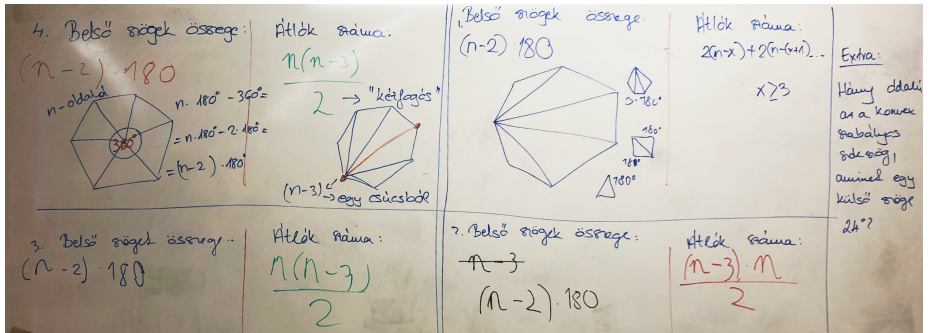 4. Belső szögek összege:
(n-2)·180
n-oldalú
360°
n·180°-360°=
=n·180°-2·180°=
=(n-2)·180°
Átlók száma:
n(n-3)
2
→"kétfogás"
(n-3)
→egy csúcsból
1. Belső szögek összege:
(n-2)·180
3·180°
180°
180°
180°
Átlók száma:
2(n-x)+2(n-(x+1)...
x≥3
Extra:
Hány oldalú
az a konvex
szabályos
sokszög,
aminek egy
külső szöge
24°?
3. Belső szögek összege..
(n-2)·180
Átlók száma:
n(n-3)
2
2. Belső szögek összege:
n-3
(n-2)·180
Átlók száma:
(n-3)·n
2